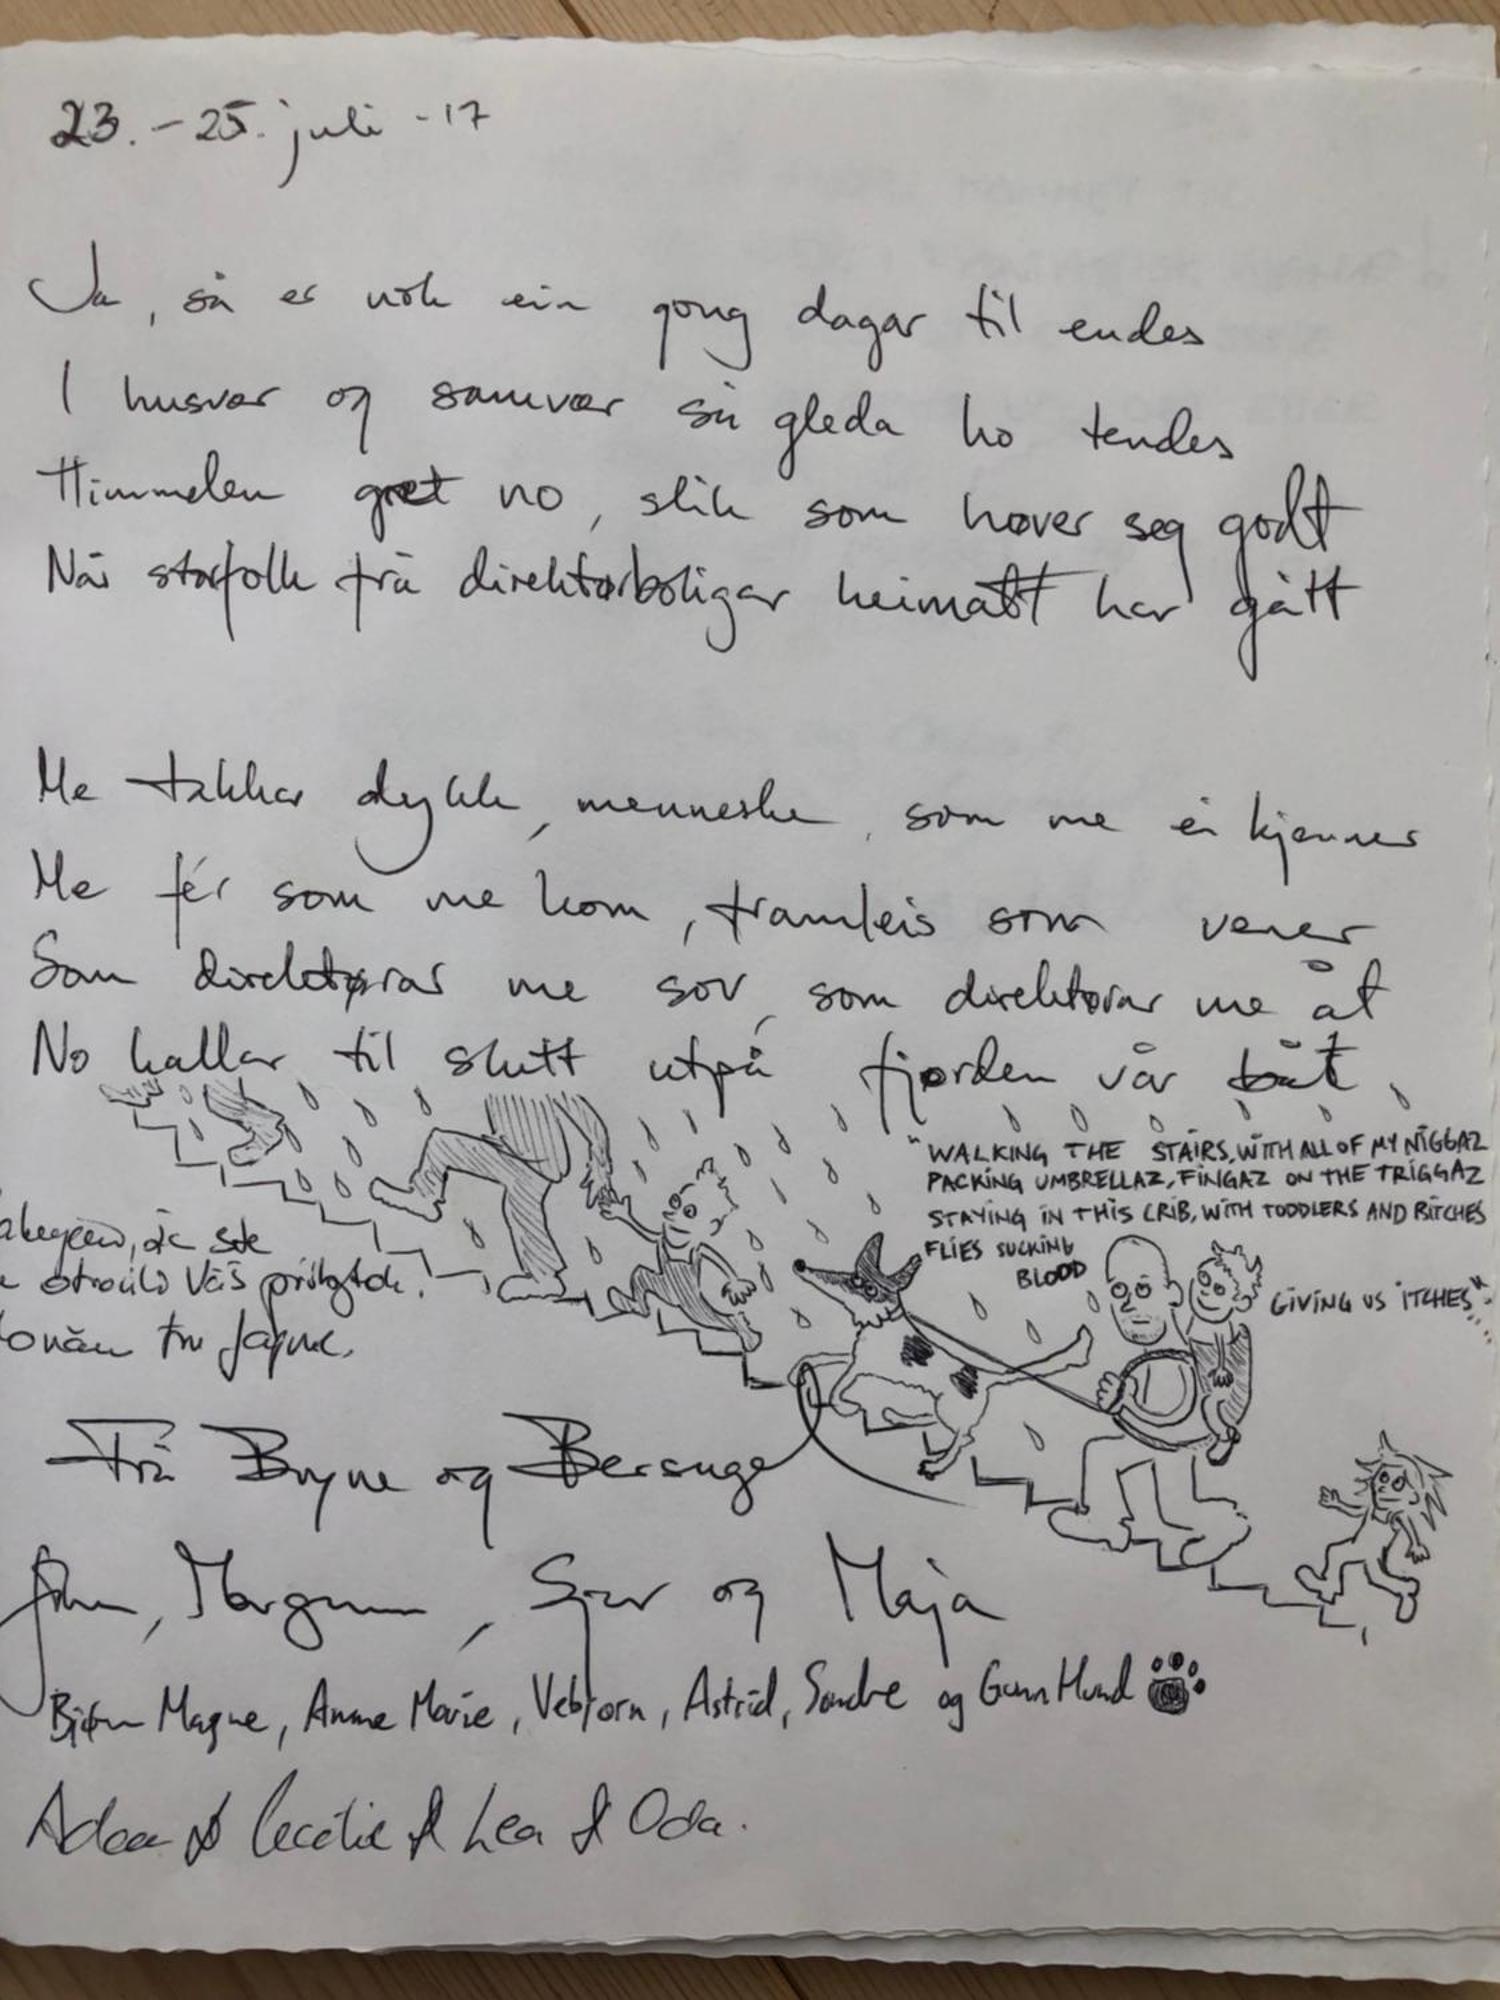 23. - 25. juli - 17
Ja, så er nok ein gong dagar til endes
I husvær og samvær så gleda ho tendes
Himmelen gret no, slik som høver seg godt
Når storfolk frå direktørboligar heimatt har gått
Me takkar dykk, menneske, som me ei kjenner
Me fér som me kom, framleis som vener
Som direktørar me sov, som direktørar me åt
No kallar til slutt utpå fjorden vår båt.
"WALKING THE STAIRS, WITH ALL OF MY NIGGAZ
PACKING UMBRELLAZ, FINGAZ ON THE TRIGGAZ
STAYING IN THIS CRIB, WITH TODDLERS AND BITCHES
FLIES SUCKING
BLOOD
GIVING US ITCHES"
Frå Bryne og Bersagel
John, Margunn, Sjur og Maja
Bjørn Magne, Anne Marie, Vebjørn, Astrid, Sondre og Gunn Hund
Adam & Cecilie & Lea & Oda.